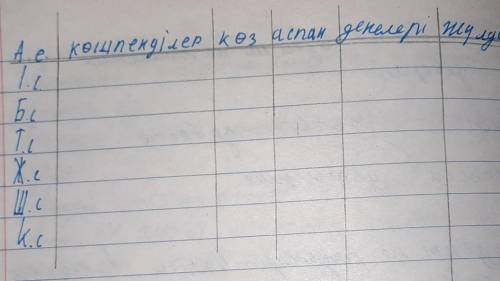 А.с. көшпенділер көз аспан денелері жұлды
І.с
Б.с
Т.с
Ж.с
Ш.с
К.с